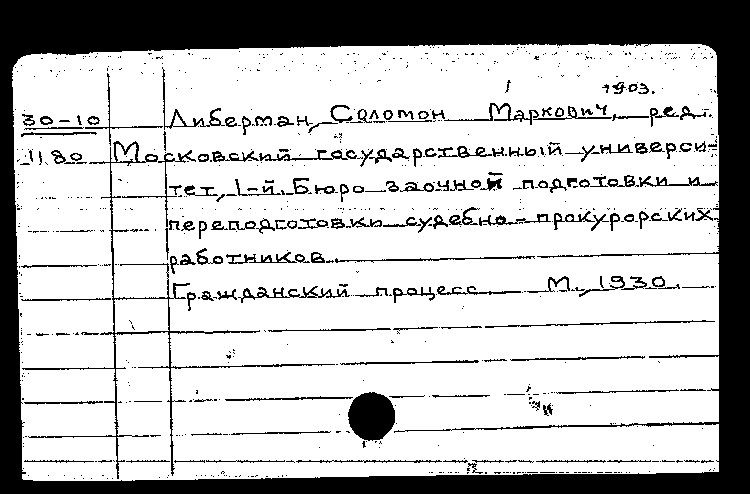 1903.
30-10 Либерман, Соломон Маркович, ред.
1180 Московский государственный универси-
тет, 1-й. Бюро заочной подготовки и
переподготовки судебно-прокурорских
работников.
Гражданский процесс М., 1930.